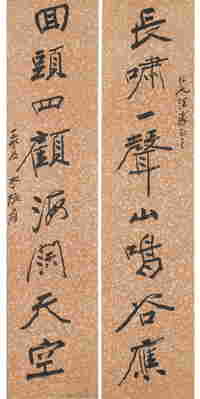 長嘯一聲山鳴谷應
回頭四顧海闊天空